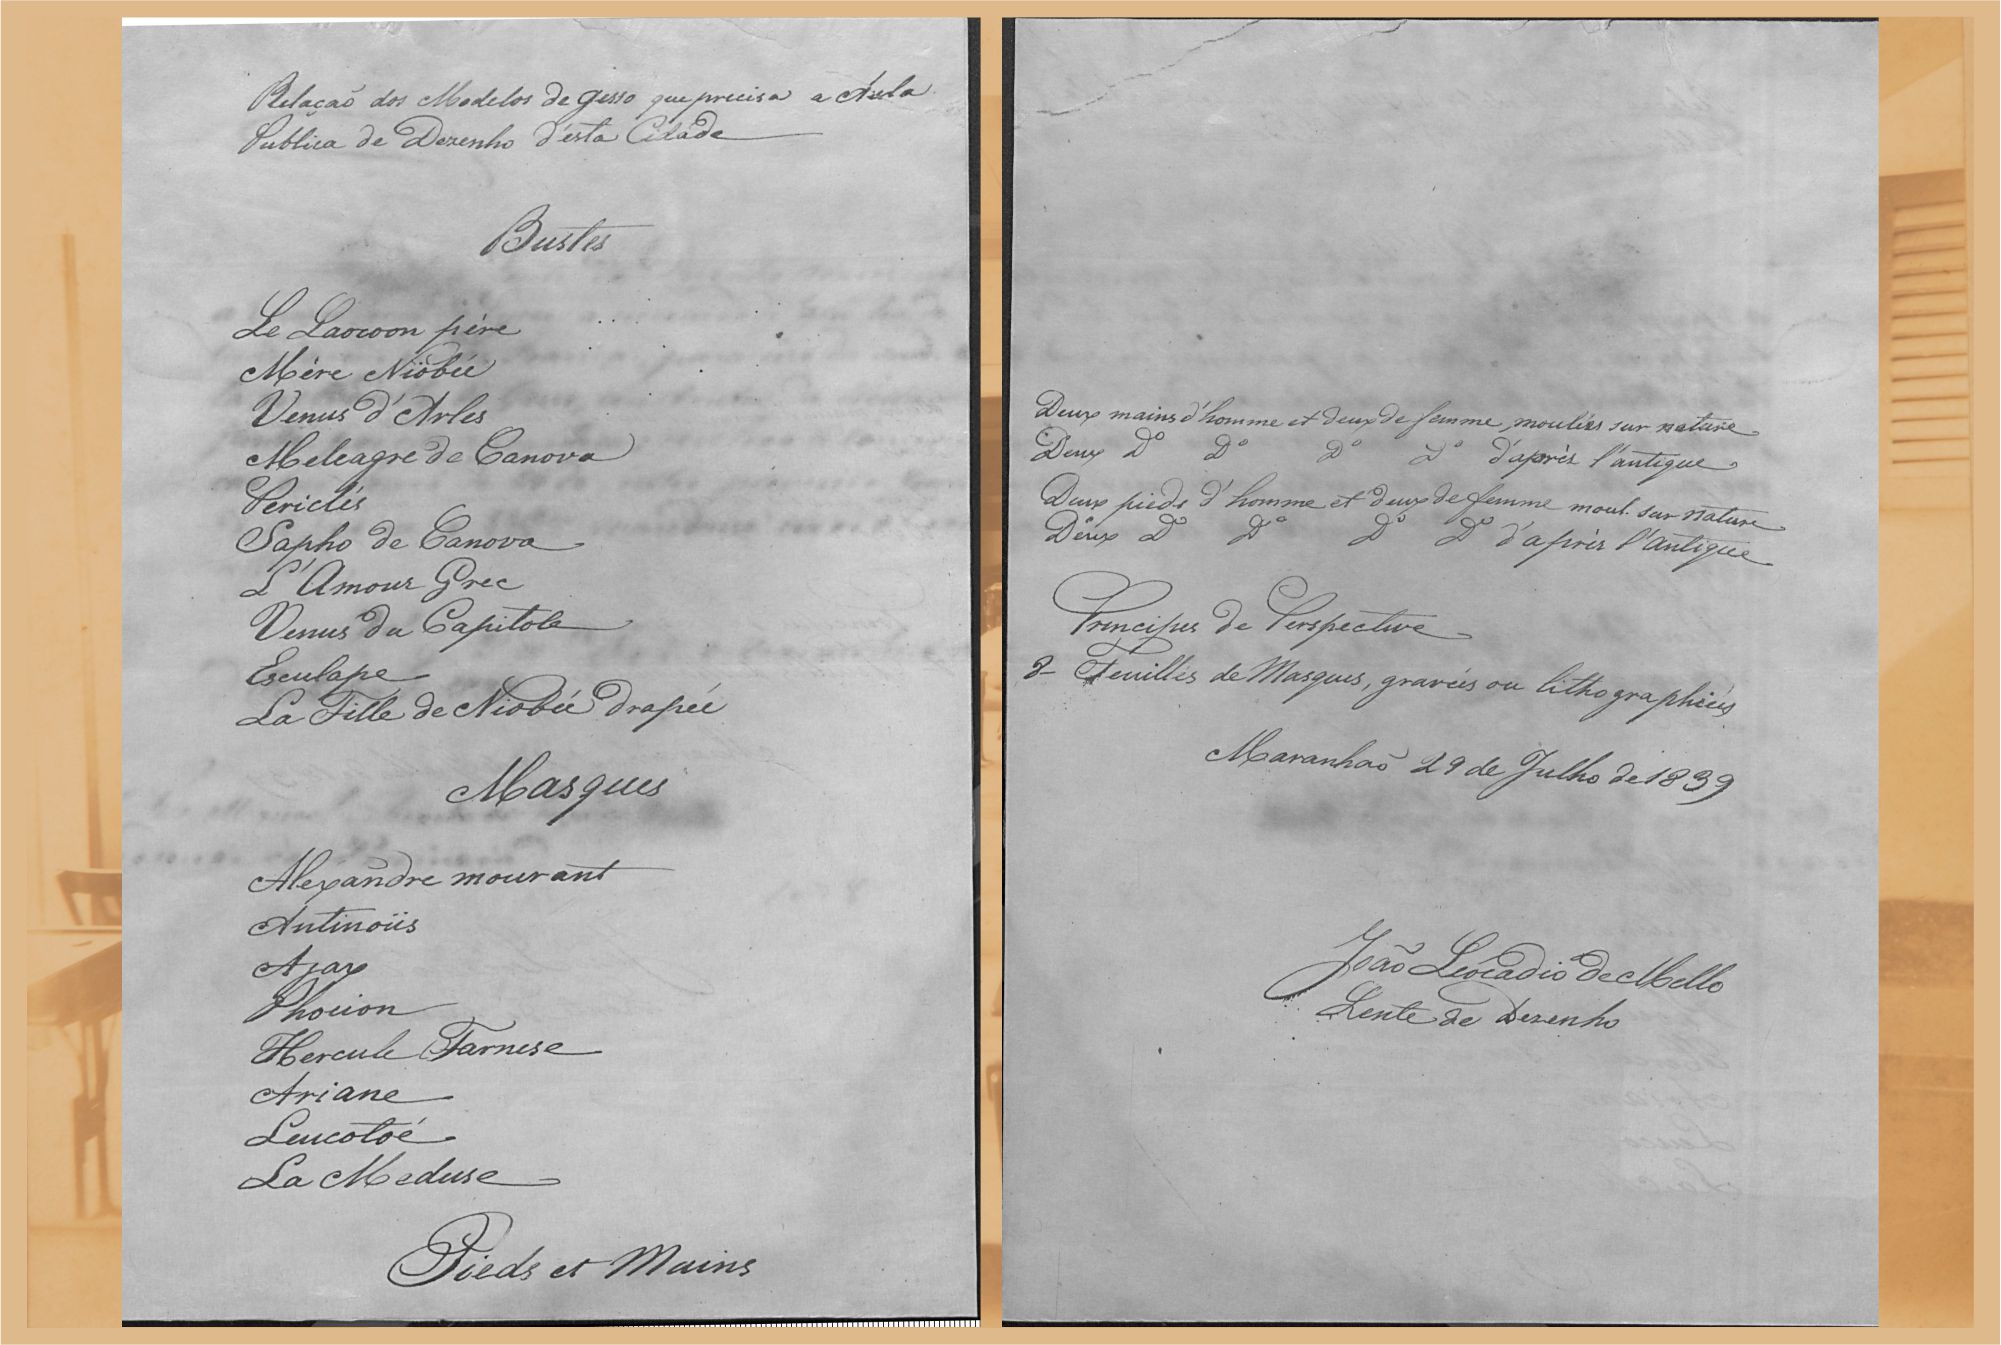 Relação dos Modelos de gesso que precisa a Aula
Publica de Dezenho d'esta Cidade
Bustes
Le Laocoon père
Mère Niöbée
Venus d'Arles
Meleagre de Canova
Periclés
Sapho de Canova
L'Amour Grec
Venus du Capitole
Esculape
La Fille de Niobée drapée
Masques
Alexandre mourant
Antinoüs
Ajax
Phocion
Hercule Farnese
Ariane
Leucotoé
La Meduse
Pieds et Mains
Deux mains d'homme et deux de femme, moulées sur nature
Deux Dº Dº Dº Dº d'après l'antique
Deux pieds d'homme et deux de femme moul. sur nature
Deux Dº Dº Dº Dº d'après l'antique
Principes de Perspective
8 Feuilles de Masques, gravées ou lithographiées
Maranhão 29 de Julho de 1839
João Leocadio de Mello
Lente de Dezenho